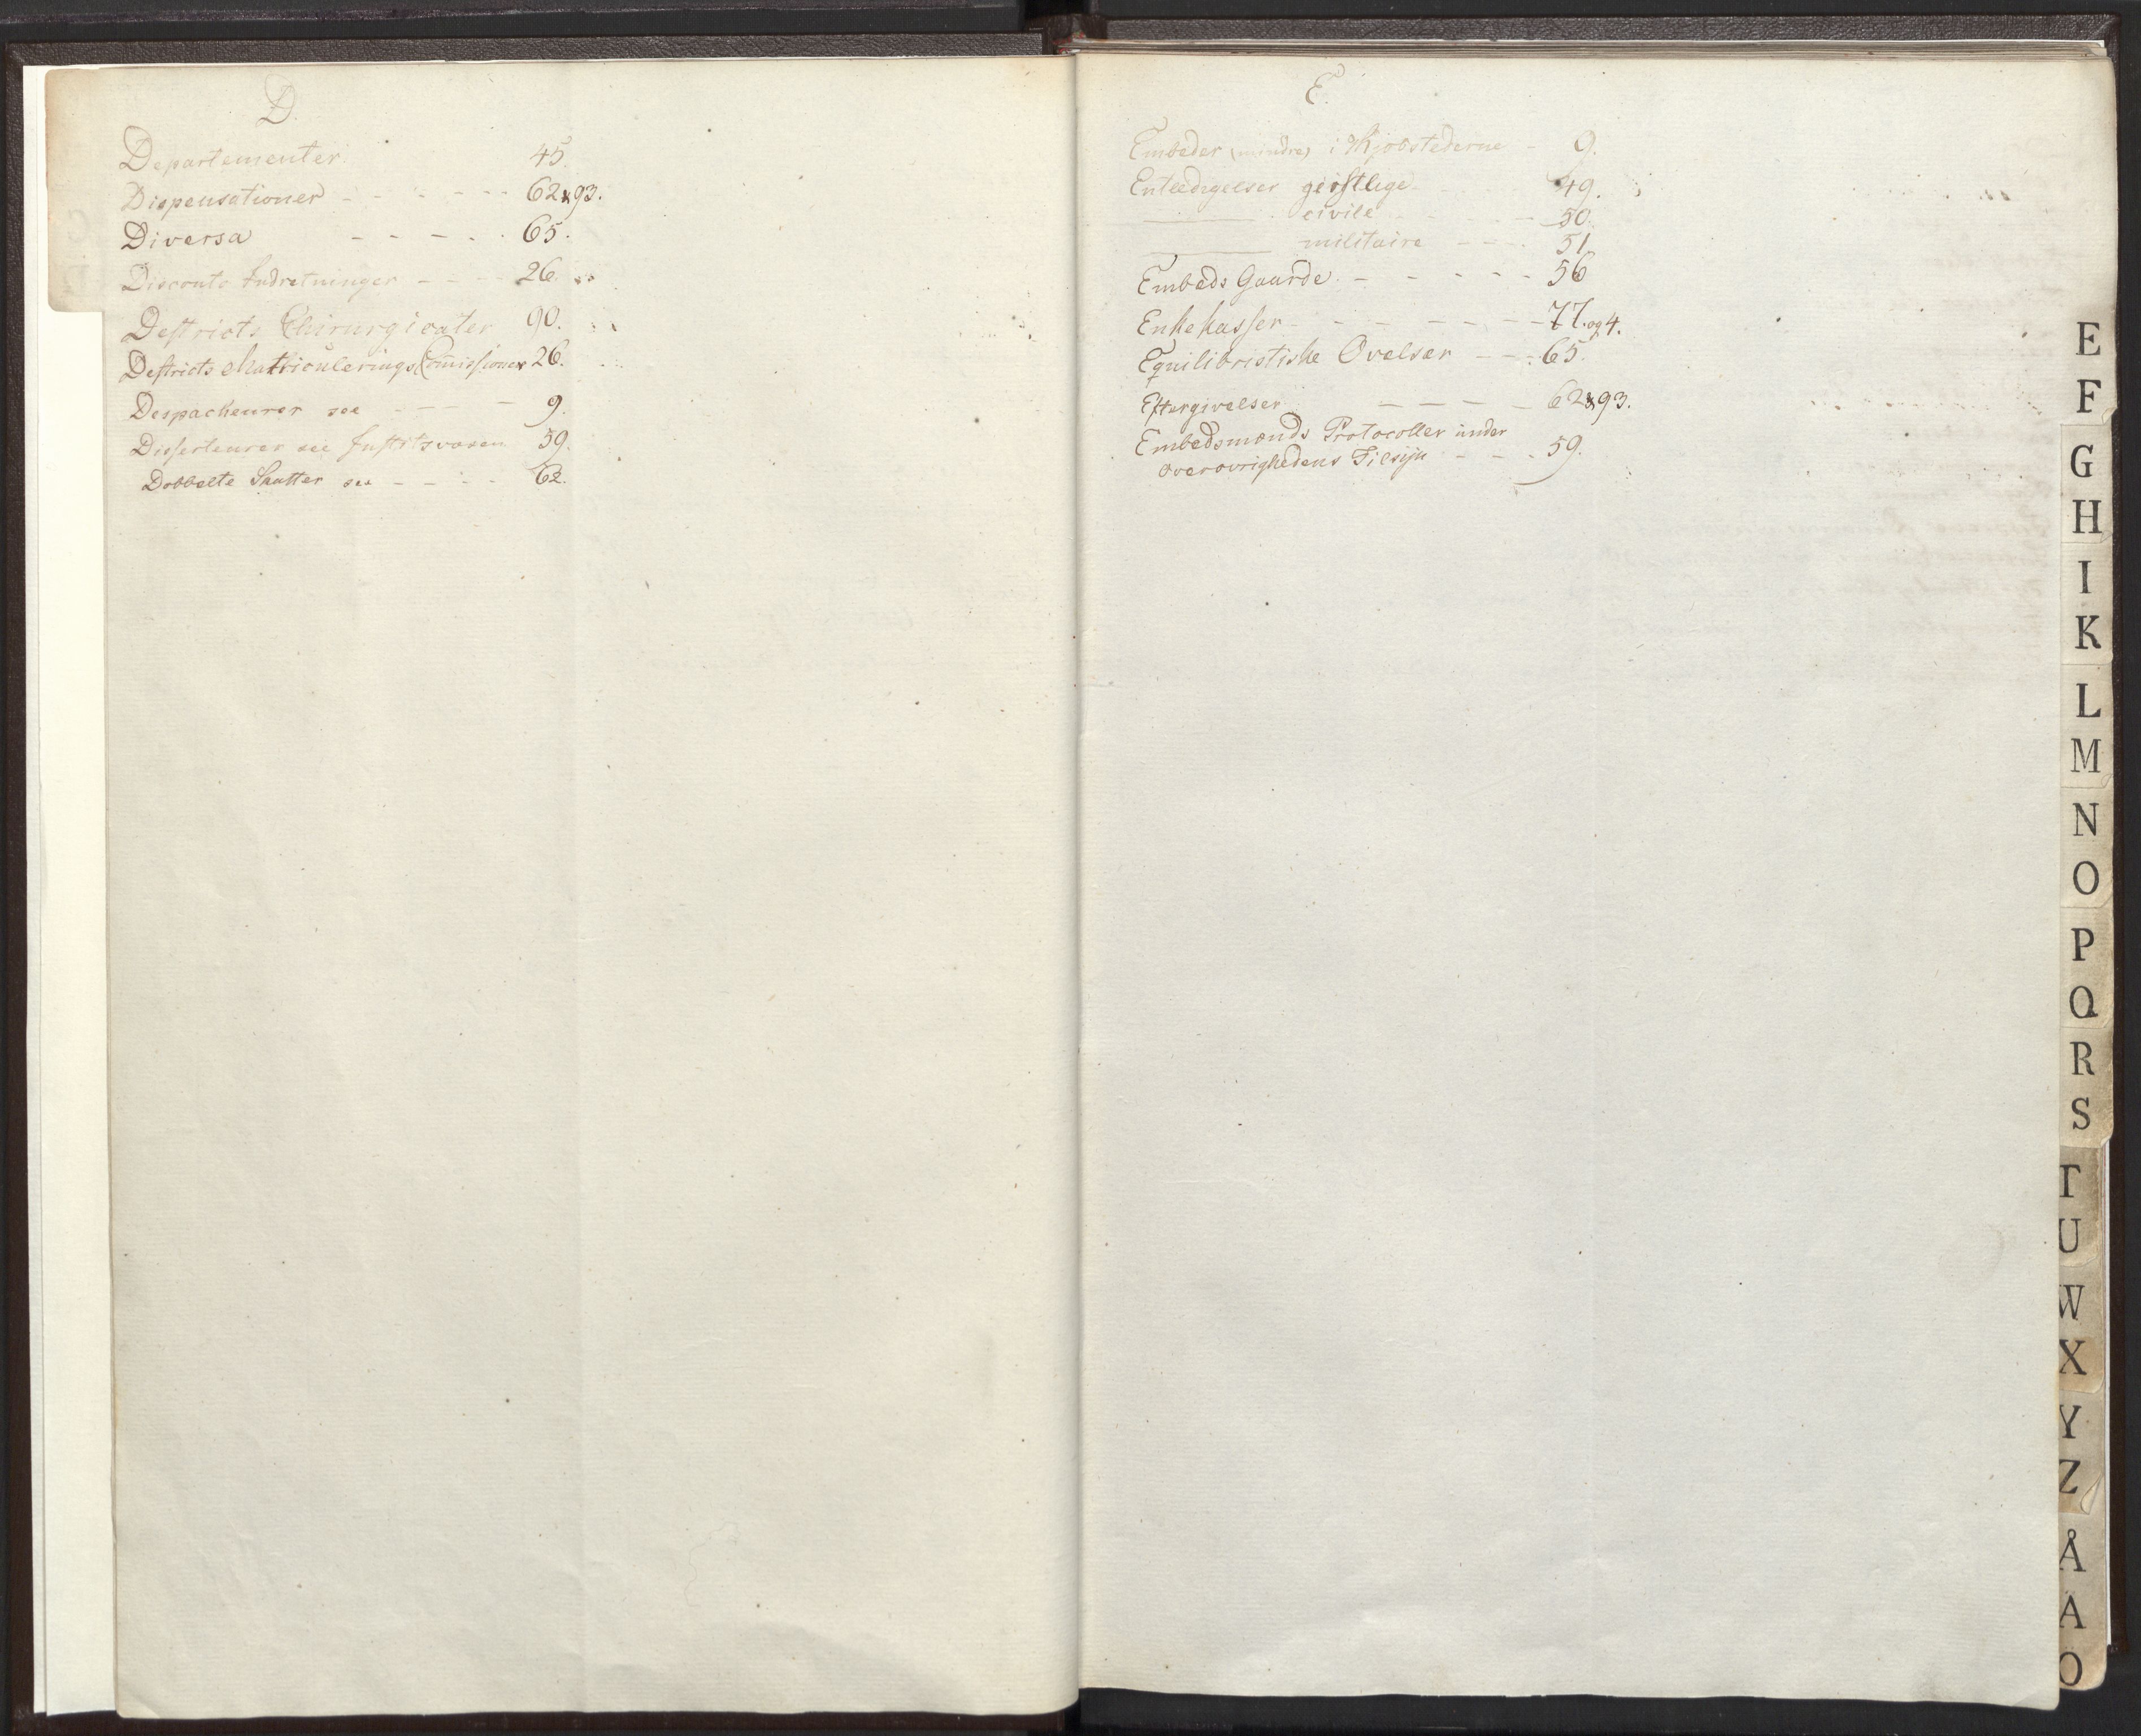 D.
Departementer 45.
Dispensationer - - - - - - 62 & 93.
Diversa - - - - . . 65.
Disconto Indretninger - - - 26.
Destricts Chirurgicater 90.
Destricts Matriculerings Commissioner 26.
Despacheurer see - - - 9.
Disserteurer see Justitsvæsen 59.
Dobbelte Skatter see - - - - 62.
E.
Embeder (mindre) i Kjøbstederne - 9.
Entledigelser geistlige 49.
civile - - - - 50.
militaire - - - 51.
Embeds Gaarde. - - - - - 56
Enkekasser - - - - - - - 77. og 4.
Equilibristiske Øvelser - - - 65.
Eftergivelser - - - - - 62 & 93.
Embedsmænds Protocoller under
Overøvrighedens Tilsyn - - - 59.
E
F
G
H
I
K
L
M
N
O
P
Q
R
S
T
U
W
X
Y
Z
Å
A
O